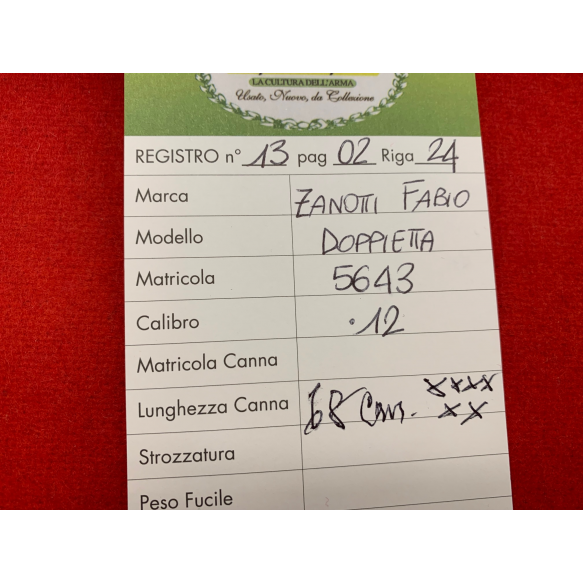 LA CULTURA DELL'ARMA
Usato, Nuovo, da Collezione
REGISTRO n° 13 pag 02 Riga 24
Marca ZANOTTI FABIO
Modello DOPPIETTA
Matricola 5643
Calibro .12
Matricola Canna
Lunghezza Canna 68 cm. xxxx
xx
Strozzatura
Peso Fucile